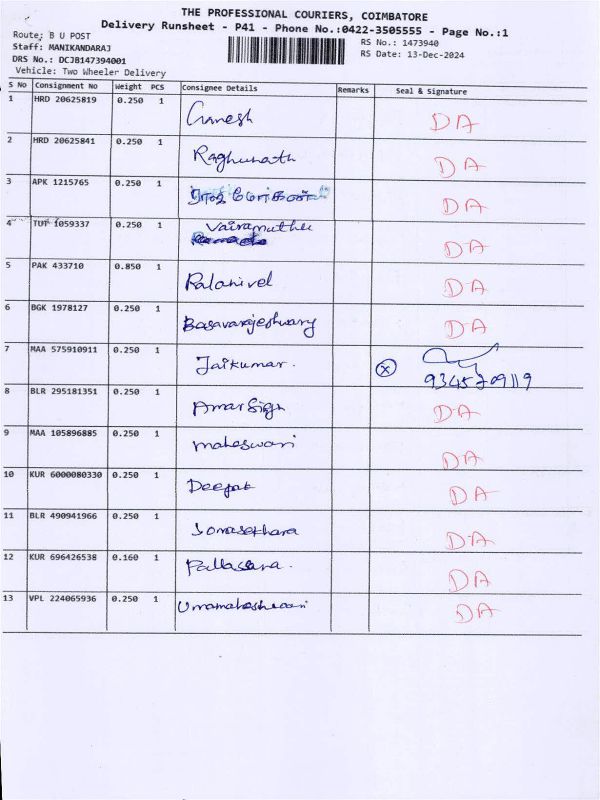 THE PROFESSIONAL COURIERS, COIMBATORE
Delivery Runsheet - P41 - Phone No.:0422-3505555 - Page No.:1
Route: B U POST
Staff: MANIKANDARAJ
DRS No.: DCJB147394001
Vehicle: Two Wheeler Delivery
RS No.: 1473940
RS Date: 13-Dec-2024
S No Consignment No Weight PCS Consignee Details Remarks Seal & Signature
1 HRD 20625819 0.250 1 Ganesh DA
2 HRD 20625841 0.250 1 Raghunath DA
3 APK 1215765 0.250 1 DA
4 TUT 1059337 0.250 1 Vairamuthu DA
5 PAK 433710 0.850 1 Palanivel DA
6 BGK 1978127 0.250 1 Basavarajeshwary DA
7 MAA 575910911 0.250 1 Jaikumar. X 9345709119
8 BLR 295181351 0.250 1 Amar Sign DA
9 MAA 105896885 0.250 1 maheswari DA
10 KUR 6000080330 0.250 1 Deepak DA
11 BLR 490941966 0.250 1 Somasekhara DA
12 KUR 696426538 0.160 1 Pallasana. DA
13 VPL 224065936 0.250 1 Umamaheshwari DA